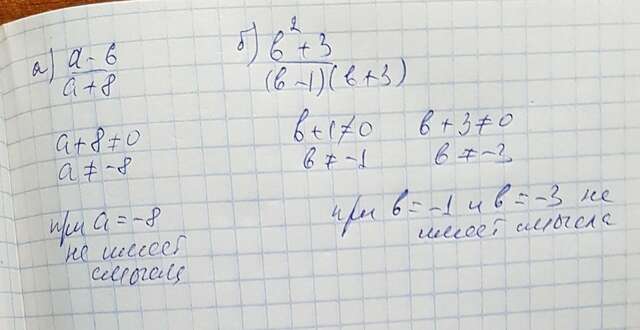 а) (a - b)/(a + 8)
a + 8 ≠ 0
a ≠ -8
при a = -8
не имеет
смысла
б) (b² + 3)/((b - 1)(b + 3))
b + 1 ≠ 0  b + 3 ≠ 0
b ≠ -1  b ≠ -3
при b = -1 и b = -3 не
имеет смысла